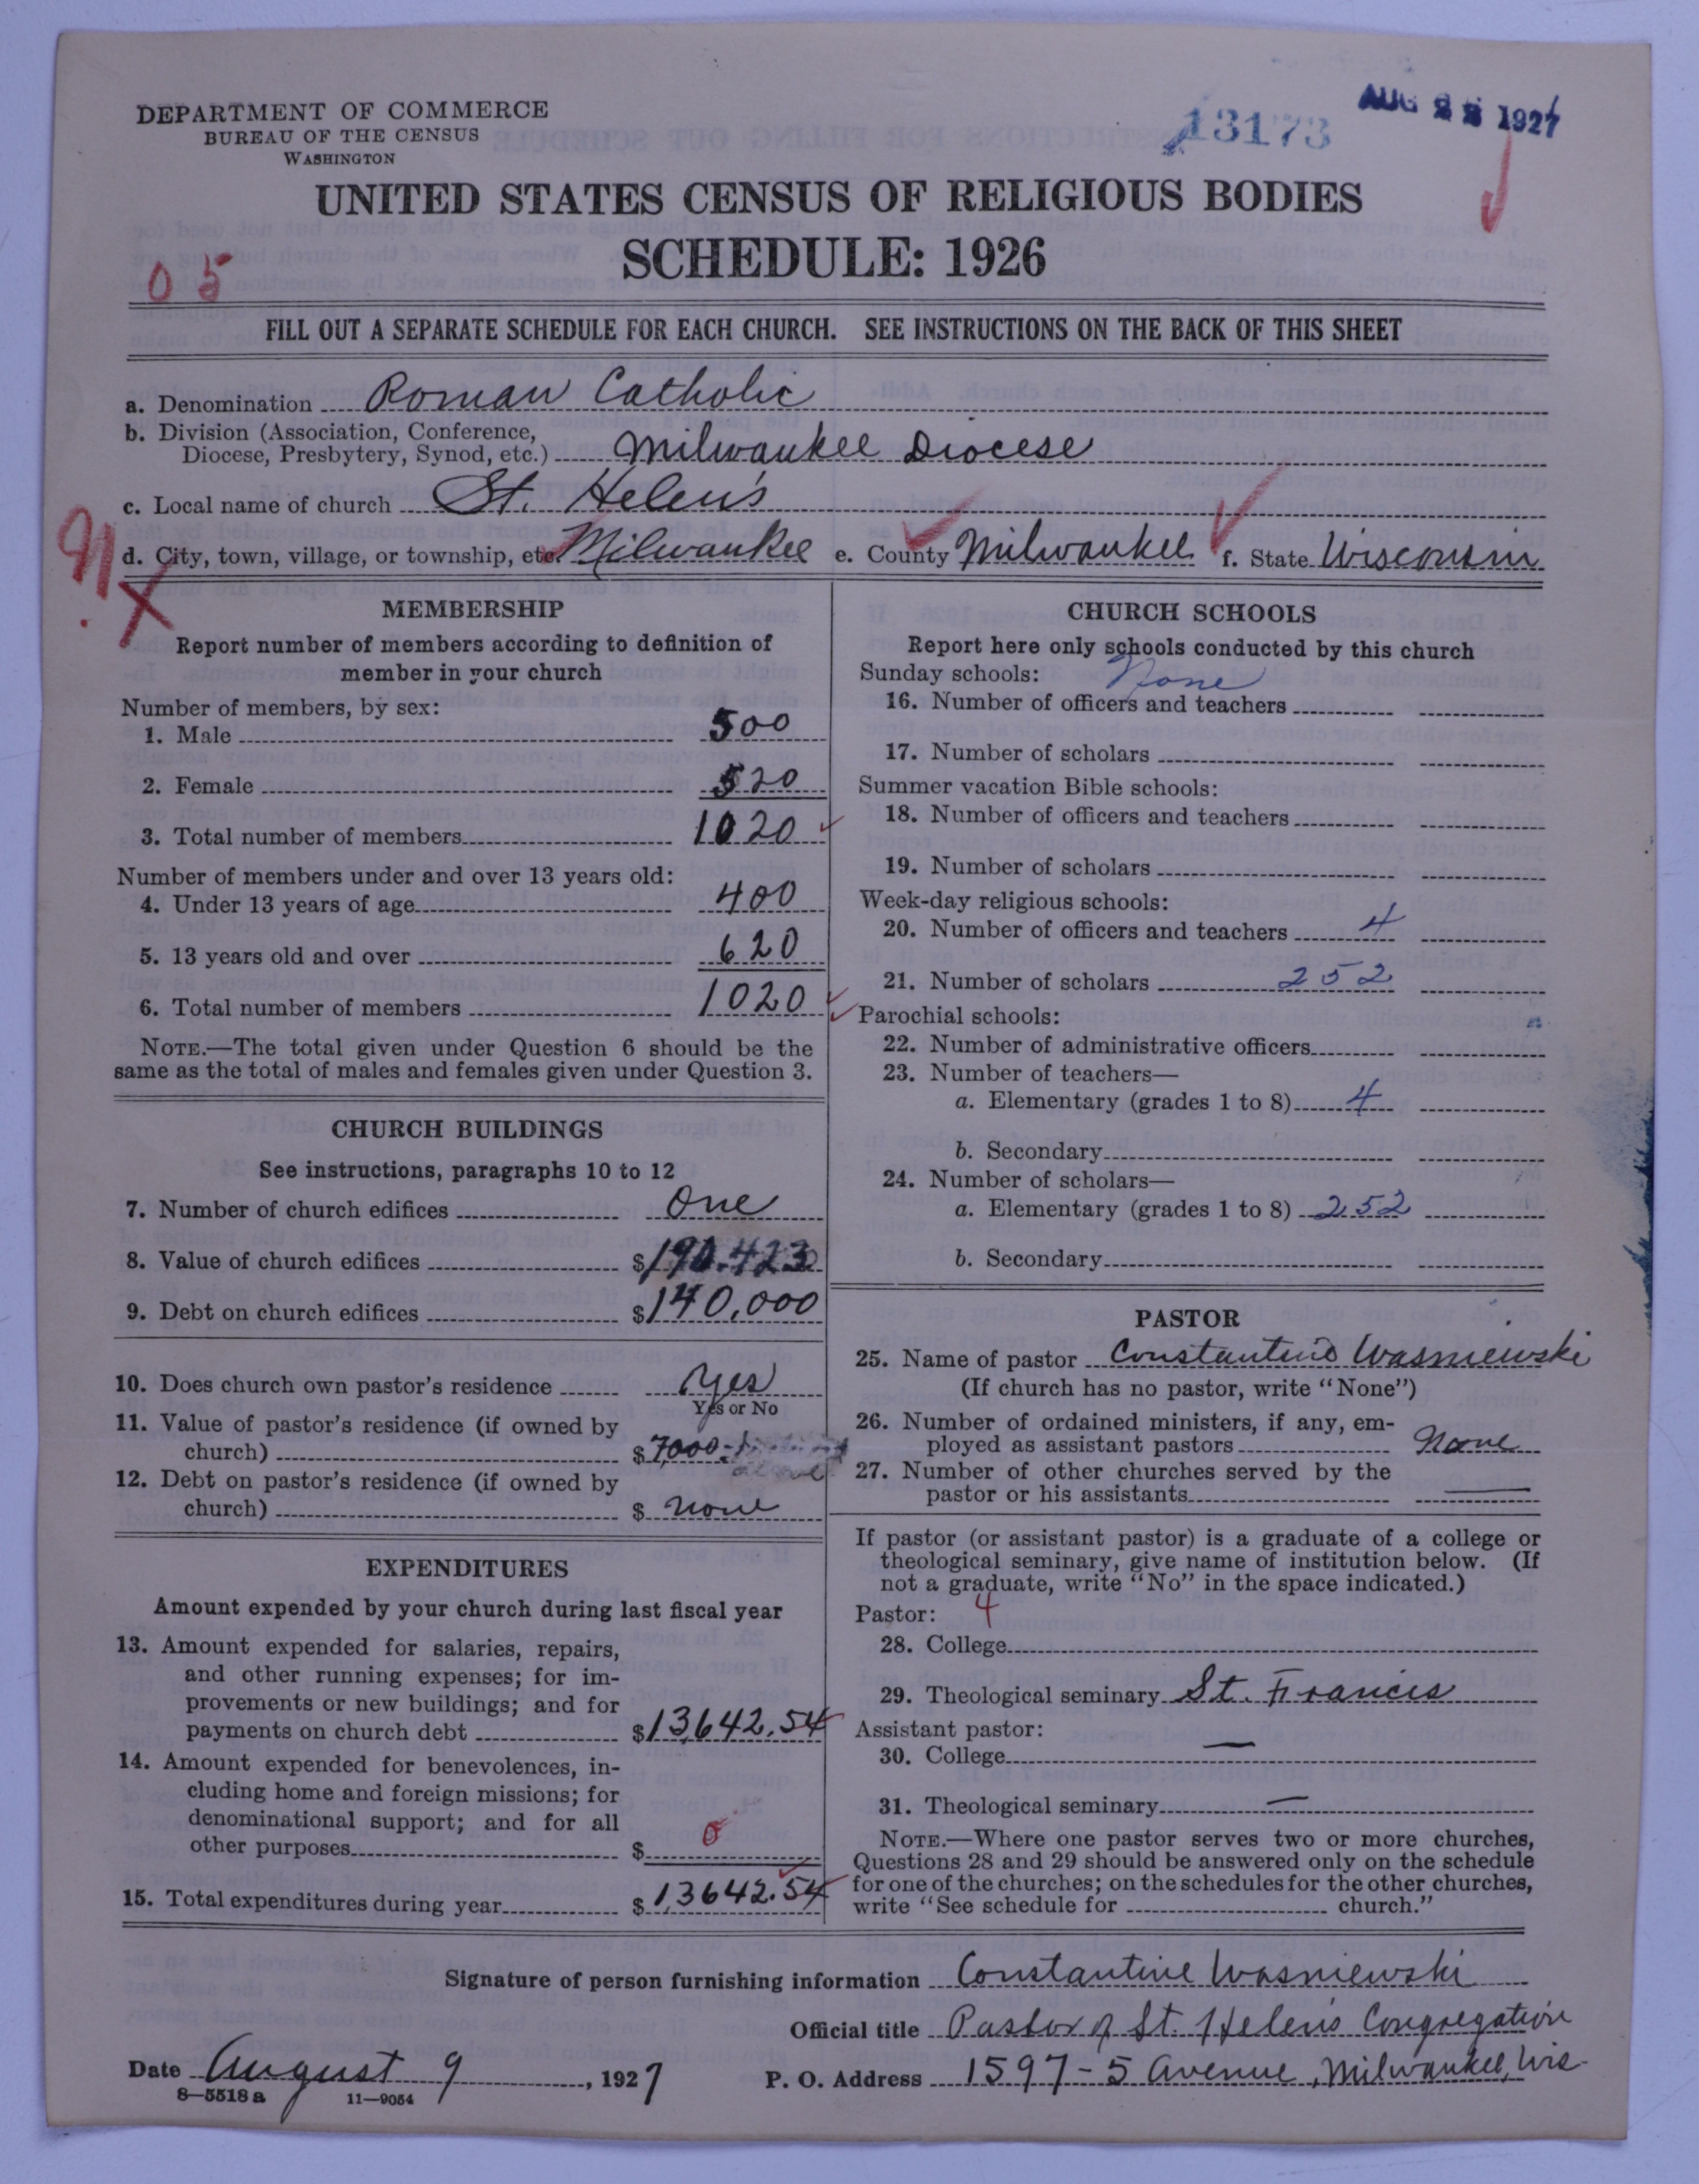 DEPARTMENT OF COMMERCE
BUREAU OF THE CENSUS
WASHINGTON
13173
AUG 1927
UNITED STATES CENSUS OF RELIGIOUS BODIES
SCHEDULE: 1926
05
FILL OUT A SEPARATE SCHEDULE FOR EACH CHURCH. SEE INSTRUCTIONS ON THE BACK OF THIS SHEET
a. Denomination Roman Catholic
b. Division (Association, Conference,
Diocese, Presbytery, Synod, etc.) Milwaukee Diocese
c. Local name of church St. Helen's
d. City, town, village, or township, etc. Milwaukee e. County Milwaukee f. State Wisconsin
91
X
MEMBERSHIP
Report number of members according to definition of
member in your church
Number of members, by sex:
1. Male 500
2. Female 520
3. Total number of members 1020
Number of members under and over 13 years old:
4. Under 13 years of age 400
5. 13 years old and over 620
6. Total number of members 1020
NOTE.—The total given under Question 6 should be the
same as the total of males and females given under Question 3.
CHURCH BUILDINGS
See instructions, paragraphs 10 to 12
7. Number of church edifices One
8. Value of church edifices $190.423
9. Debt on church edifices $140,000
10. Does church own pastor's residence Yes
Yes or No
11. Value of pastor's residence (if owned by
church) $7000
12. Debt on pastor's residence (if owned by
church) $ none
EXPENDITURES
Amount expended by your church during last fiscal year
13. Amount expended for salaries, repairs,
and other running expenses; for im-
provements or new buildings; and for
payments on church debt $13,642.54
14. Amount expended for benevolences, in-
cluding home and foreign missions; for
denominational support; and for all
other purposes $ 0
15. Total expenditures during year $13642.54
CHURCH SCHOOLS
Report here only schools conducted by this church
Sunday schools: None
16. Number of officers and teachers
17. Number of scholars
Summer vacation Bible schools:
18. Number of officers and teachers
19. Number of scholars
Week-day religious schools:
20. Number of officers and teachers 4
21. Number of scholars 252
Parochial schools:
22. Number of administrative officers
23. Number of teachers—
a. Elementary (grades 1 to 8) 4
b. Secondary
24. Number of scholars—
a. Elementary (grades 1 to 8) 252
b. Secondary
PASTOR
25. Name of pastor Constantine Wasniewski
(If church has no pastor, write "None")
26. Number of ordained ministers, if any, em-
ployed as assistant pastors None
27. Number of other churches served by the
pastor or his assistants —
If pastor (or assistant pastor) is a graduate of a college or
theological seminary, give name of institution below. (If
not a graduate, write "No" in the space indicated.)
Pastor: 4
28. College
29. Theological seminary St. Francis
Assistant pastor:
30. College —
31. Theological seminary —
NOTE.—Where one pastor serves two or more churches,
Questions 28 and 29 should be answered only on the schedule
for one of the churches; on the schedules for the other churches,
write "See schedule for church."
Signature of person furnishing information Constantine Wasniewski
Official title Pastor of St. Helen's Congregation
Date August 9, 1927 P. O. Address 1597-5 Avenue, Milwaukee, Wis.
8—5518a 11—9054